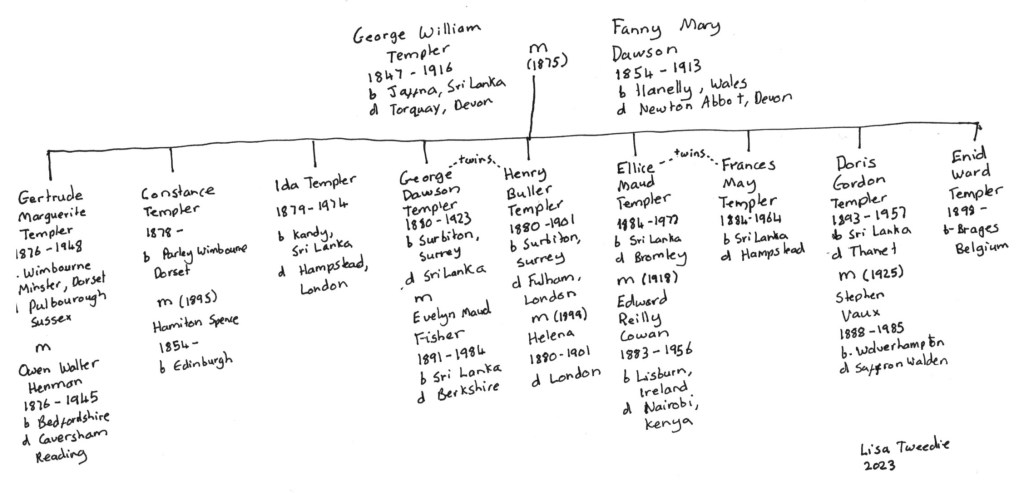 George William
Templer
1847 - 1916
b Jaffna, Sri Lanka
d Torquay, Devon
m
(1875)
Fanny Mary
Dawson
1854 - 1913
b Llanelly, Wales
d Newton Abbot, Devon
Gertrude
Marguerite
Templer
1876 - 1948
. Wimbourne
Minster, Dorset
Pulbourough
Sussex
m
Owen Waller
Henman
1876 - 1945
b Bedfordshire
d Caversham
Reading
Constance
Templer
1878 -
b Parley Wimbourne
Dorset
m (1895)
Hamilton Spence
1854 -
b Edinburgh
Ida Templer
1879 - 1974
b Kandy,
Sri Lanka
d Hampstead,
London
George
Dawson
Templer
1880 - 1923
b Surbiton,
Surrey
d Sri Lanka
m
Evelyn Maud
Fisher
1891 - 1984
b Sri Lanka
d Berkshire
twins
Henry
Buller
Templer
1880 - 1901
b Surbiton,
Surrey
d Fulham,
London
m (1899)
Helena
1880 - 1901
d London
Ellice
Maud
Templer
1884 - 1977
b Sri Lanka
d Bromley
m (1918)
Edward
Reilly
Cowan
1883 - 1956
b Lisburn,
Ireland
d Nairobi,
Kenya
twins
Frances
May
Templer
1884 - 1964
b Sri Lanka
d Hampstead
Doris
Gordon
Templer
1893 - 1957
b Sri Lanka
d Thanet
m (1925)
Stephen
Vaux
1888 - 1985
b. Wolverhampton
d Saffron Walden
Enid
Ward
Templer
1898 -
b Brages
Belgium
Lisa Tweedie
2023